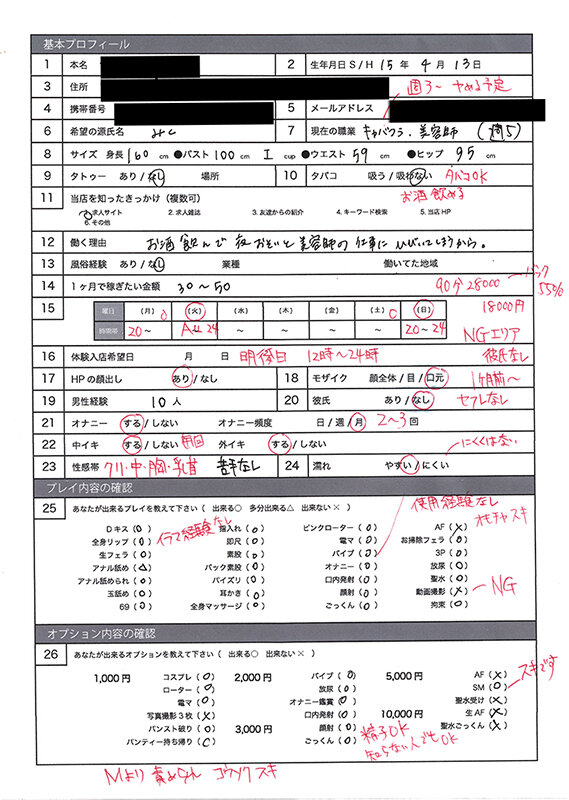 基本プロフィール
1 本名 2 生年月日 S/H 15年 4月 13日
3 住所 週3～ やめる予定
4 携帯番号 5 メールアドレス
6 希望の源氏名 みく 7 現在の職業 キャバクラ・美容師 (週5)
8 サイズ 身長 160 cm ●バスト 100 cm I cup ●ウエスト 59 cm ●ヒップ 95 cm
9 タトゥー あり/なし 場所 10 タバコ 吸う/吸わない タバコOK
お酒飲める
11 当店を知ったきっかけ(複数可)
1.求人サイト 2.求人雑誌 3.友達からの紹介 4.キーワード検索 5.当店HP
6.その他
12 働く理由 お酒飲んで夜おそいと美容師の仕事にひびいてしまうから。
13 風俗経験 あり/なし 業種 働いてた地域
14 1ヶ月で稼ぎたい金額 30～50 90分 28000 バック 55%
18000円
15 曜日 (月) (火) (水) (木) (金) (土) (日)
時間帯 20～ ALL 24 ～ ～ ～ ～ 20～24
NGエリア
16 体験入店希望日 月 日 明後日 12時～24時 彼氏なし
17 HPの顔出し あり/なし 18 モザイク 顔全体/目/口元 1ヶ月前～
19 男性経験 10人 20 彼氏 あり/なし セフレなし
21 オナニー する/しない オナニー頻度 日/週/月 2～3回
22 中イキ する/しない 毎回 外イキ する/しない
にくくはない
23 性感帯 クリ・中・胸・乳首 苦手なし 24 濡れ やすい/にくい
プレイ内容の確認
使用経験なし
オモチャスキ
25 あなたが出来るプレイを教えて下さい( 出来る○ 多分出来る△ 出来ない× )
Dキス(○) 指入れ(○) ピンクローター(○) AF(×)
イラマ経験なし
全身リップ(○) 即尺(○) 電マ(○) お掃除フェラ(○)
生フェラ(○) 素股(○) バイブ(○) 3P(○)
アナル舐め(△) バック素股(○) オナニー(○) 放尿(○)
アナル舐められ(○) パイズリ(○) 口内発射(○) 聖水(○)
玉舐め(○) 耳かき(○) 顔射(○) 動画撮影(×) NG
69(○) 全身マッサージ(○) ごっくん(○) 拘束(○)
オプション内容の確認
26 あなたが出来るオプションを教えて下さい( 出来る○ 出来ない× )
1,000円 コスプレ(○) 2,000円 バイブ(○) 5,000円 AF(×)
スキです
ローター(○) 放尿(○) SM(○)
電マ(○) オナニー鑑賞(○) 聖水受け(×)
写真撮影3枚(×) 口内発射(○) 10,000円 生AF(×)
パンスト破り(○) 3,000円 顔射(○) 聖水ごっくん(×)
パンティー持ち帰り(○) ごっくん(○)
精子OK
知らない人でもOK
Mより 責め
コウソクスキ